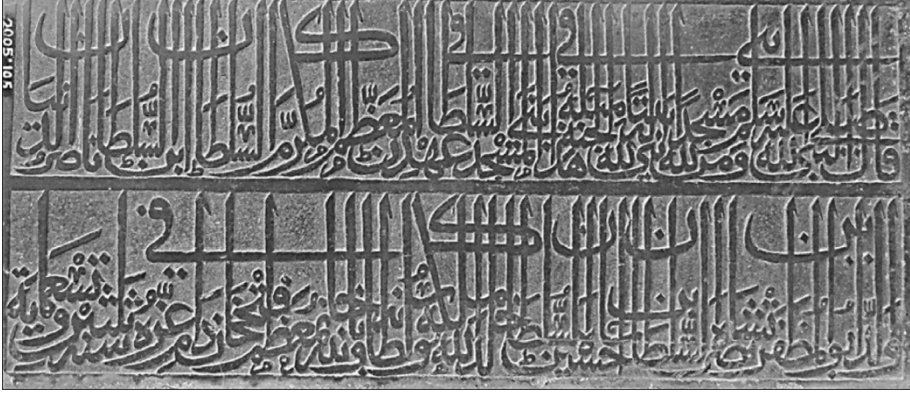 2005.105
قال النبي صلى الله عليه وسلم من بنى لله مسجدا بنى الله له بيتا مثله في الجنة بنى هذا المسجد في عهد السلطان المعظم المكرم السلطان ابن السلطان ناصر الدنيا
والدين ابو المظفر نصرت شاه السلطان ابن حسين شاه السلطان خلد الله ملكه وسلطانه معظم فتح خان دام عزه في سنة ثلثين وتسعماية